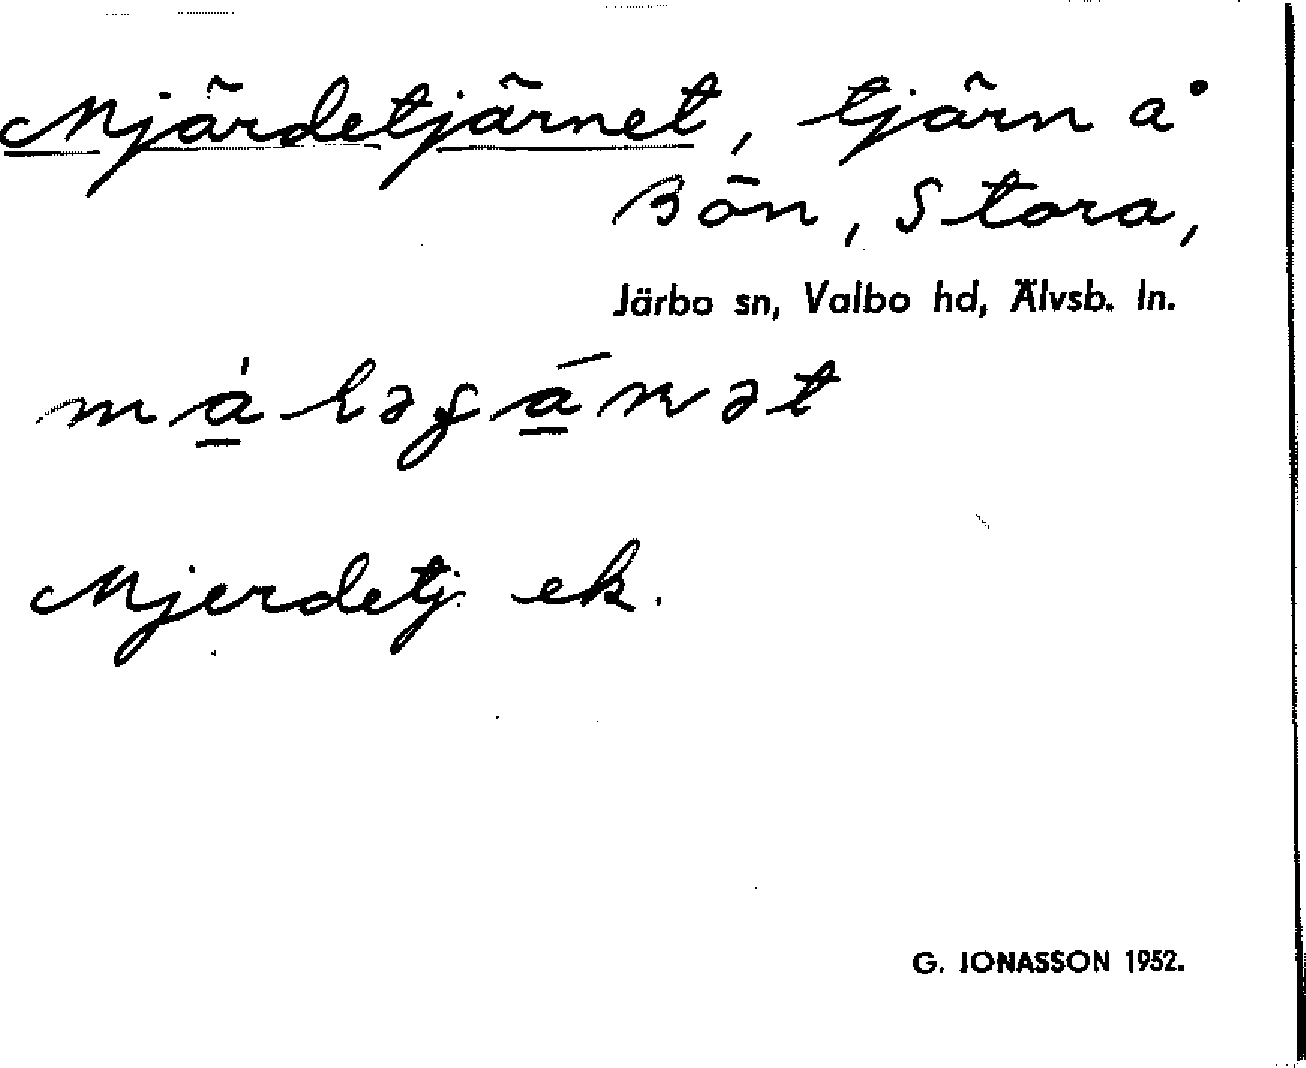 Mjärdetjärnet, tjärn å
Bön, Stora,
Järbo sn, Valbo hd, Älvsb. ln.
Mjerdetj. ek.
G. JONASSON 1952.